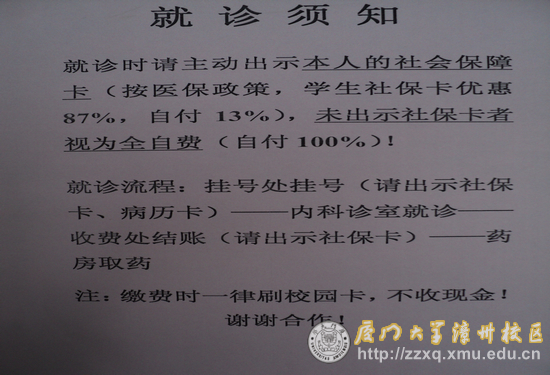 就诊须知
就诊时请主动出示本人的社会保障
卡（按医保政策，学生社保卡优惠
87%，自付 13%），未出示社保卡者
视为全自费（自付 100%）！
就诊流程：挂号处挂号（请出示社保
卡、病历卡）——内科诊室就诊——
收费处结账（请出示社保卡）——药
房取药
注：缴费时一律刷校园卡，不收现金！
谢谢合作！
厦门大学漳州校区
http://zzxq.xmu.edu.cn